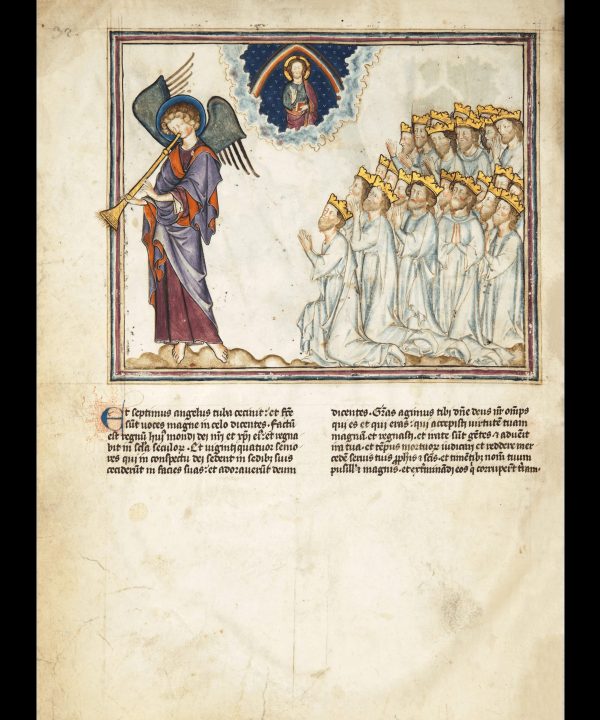 Et septimus angelus tuba cecinit: et fcē
sūt uoces magne in celo dicentes. Factū
est regnū huiꝰ mondi dei nr̄i et xp̄i eiꝰ. et regna
bit in sc̄la seculoꝝ. Et uigintiquatuor senio
res qui in conspectu dei sedent in sedibꝫ suis
ceciderūt in facies suas: et adorauerūt deum
dicentes. Gr̄as agimus tibi dn̄e deus nr̄ om̄ps
qui es et qui eras: qui accepisti uirtutē tuam
magnā. et regnasti. et irate sūt gētes. et aduēit
ira tua. et tēpus mortuoꝝ iudicari et reddere mer
cedē seruis tuis ꝓphis et sc̄is. et timētibꝫ nom̄ tuum
pusillꝭ et magnis. et ext̄minādi eos q̇ corruperūt t̄ram.